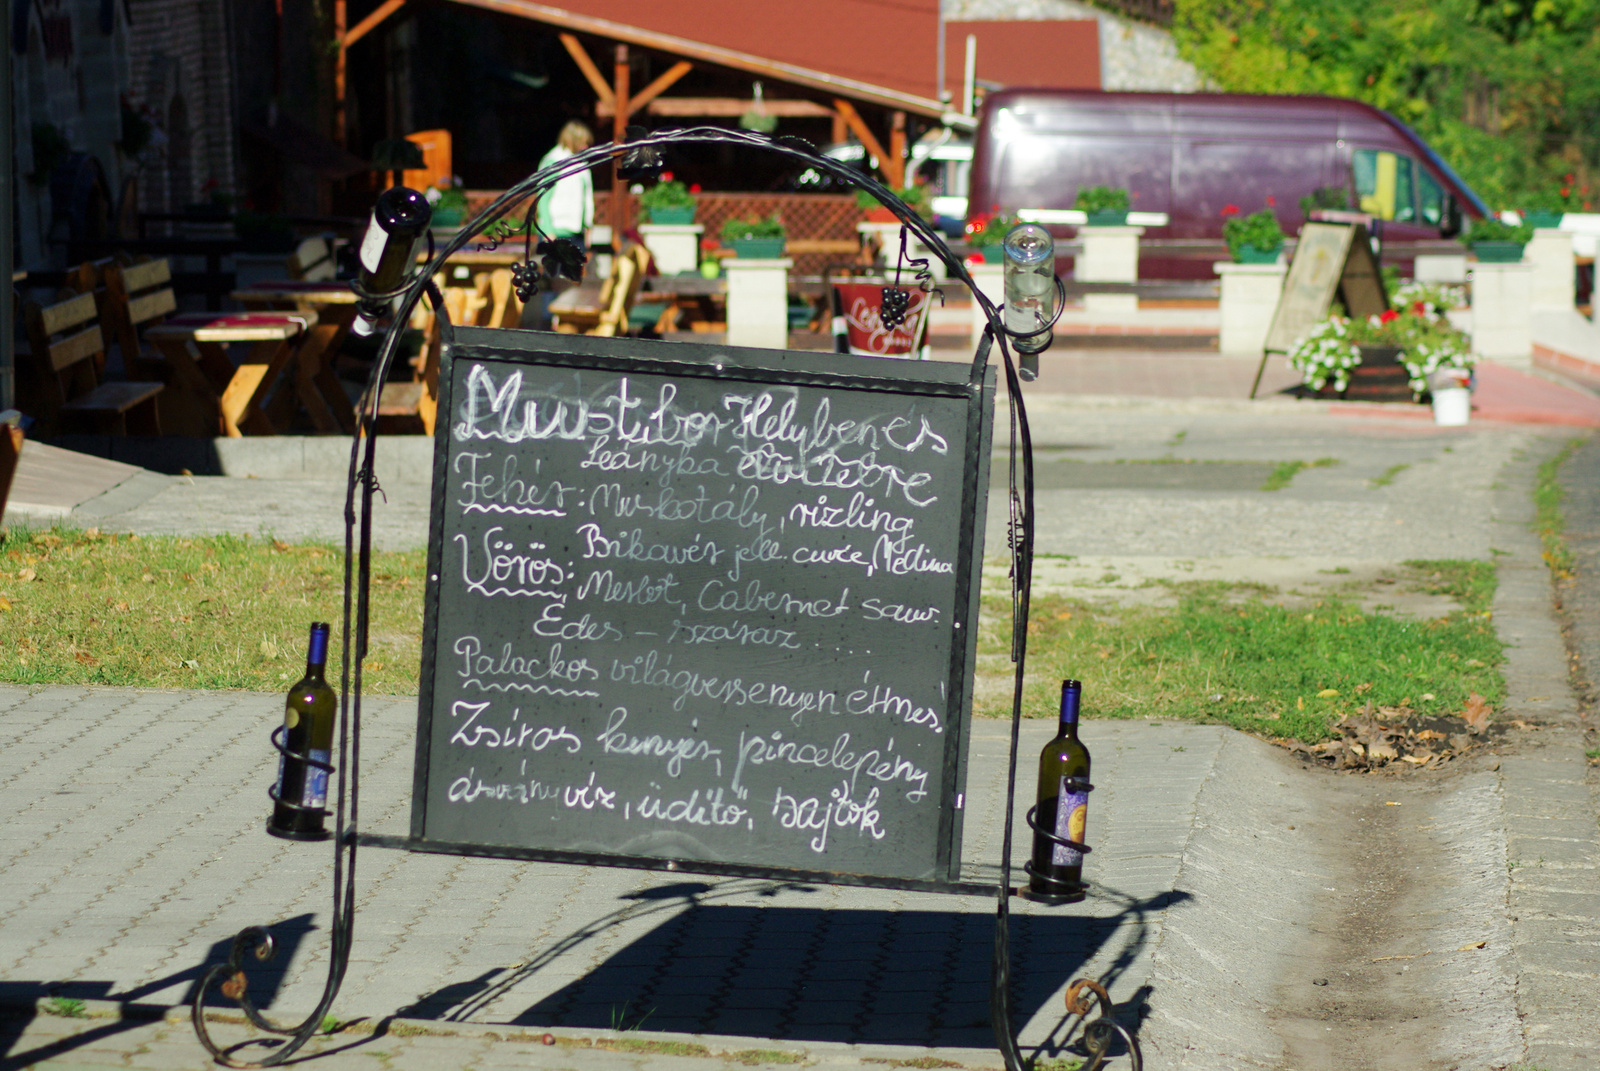 Must, bor Helyben és
Leányka elvitelre
Fehér: Muskotály, rizling
Bikavér jell. cuvée, Medina
Vörös: Merlot, Cabernet sauv.
Édes – száraz.....
Palackos világversenyen érmes!
Zsíros kenyér, pincelepény
ásványvíz, üdítő, sajtok